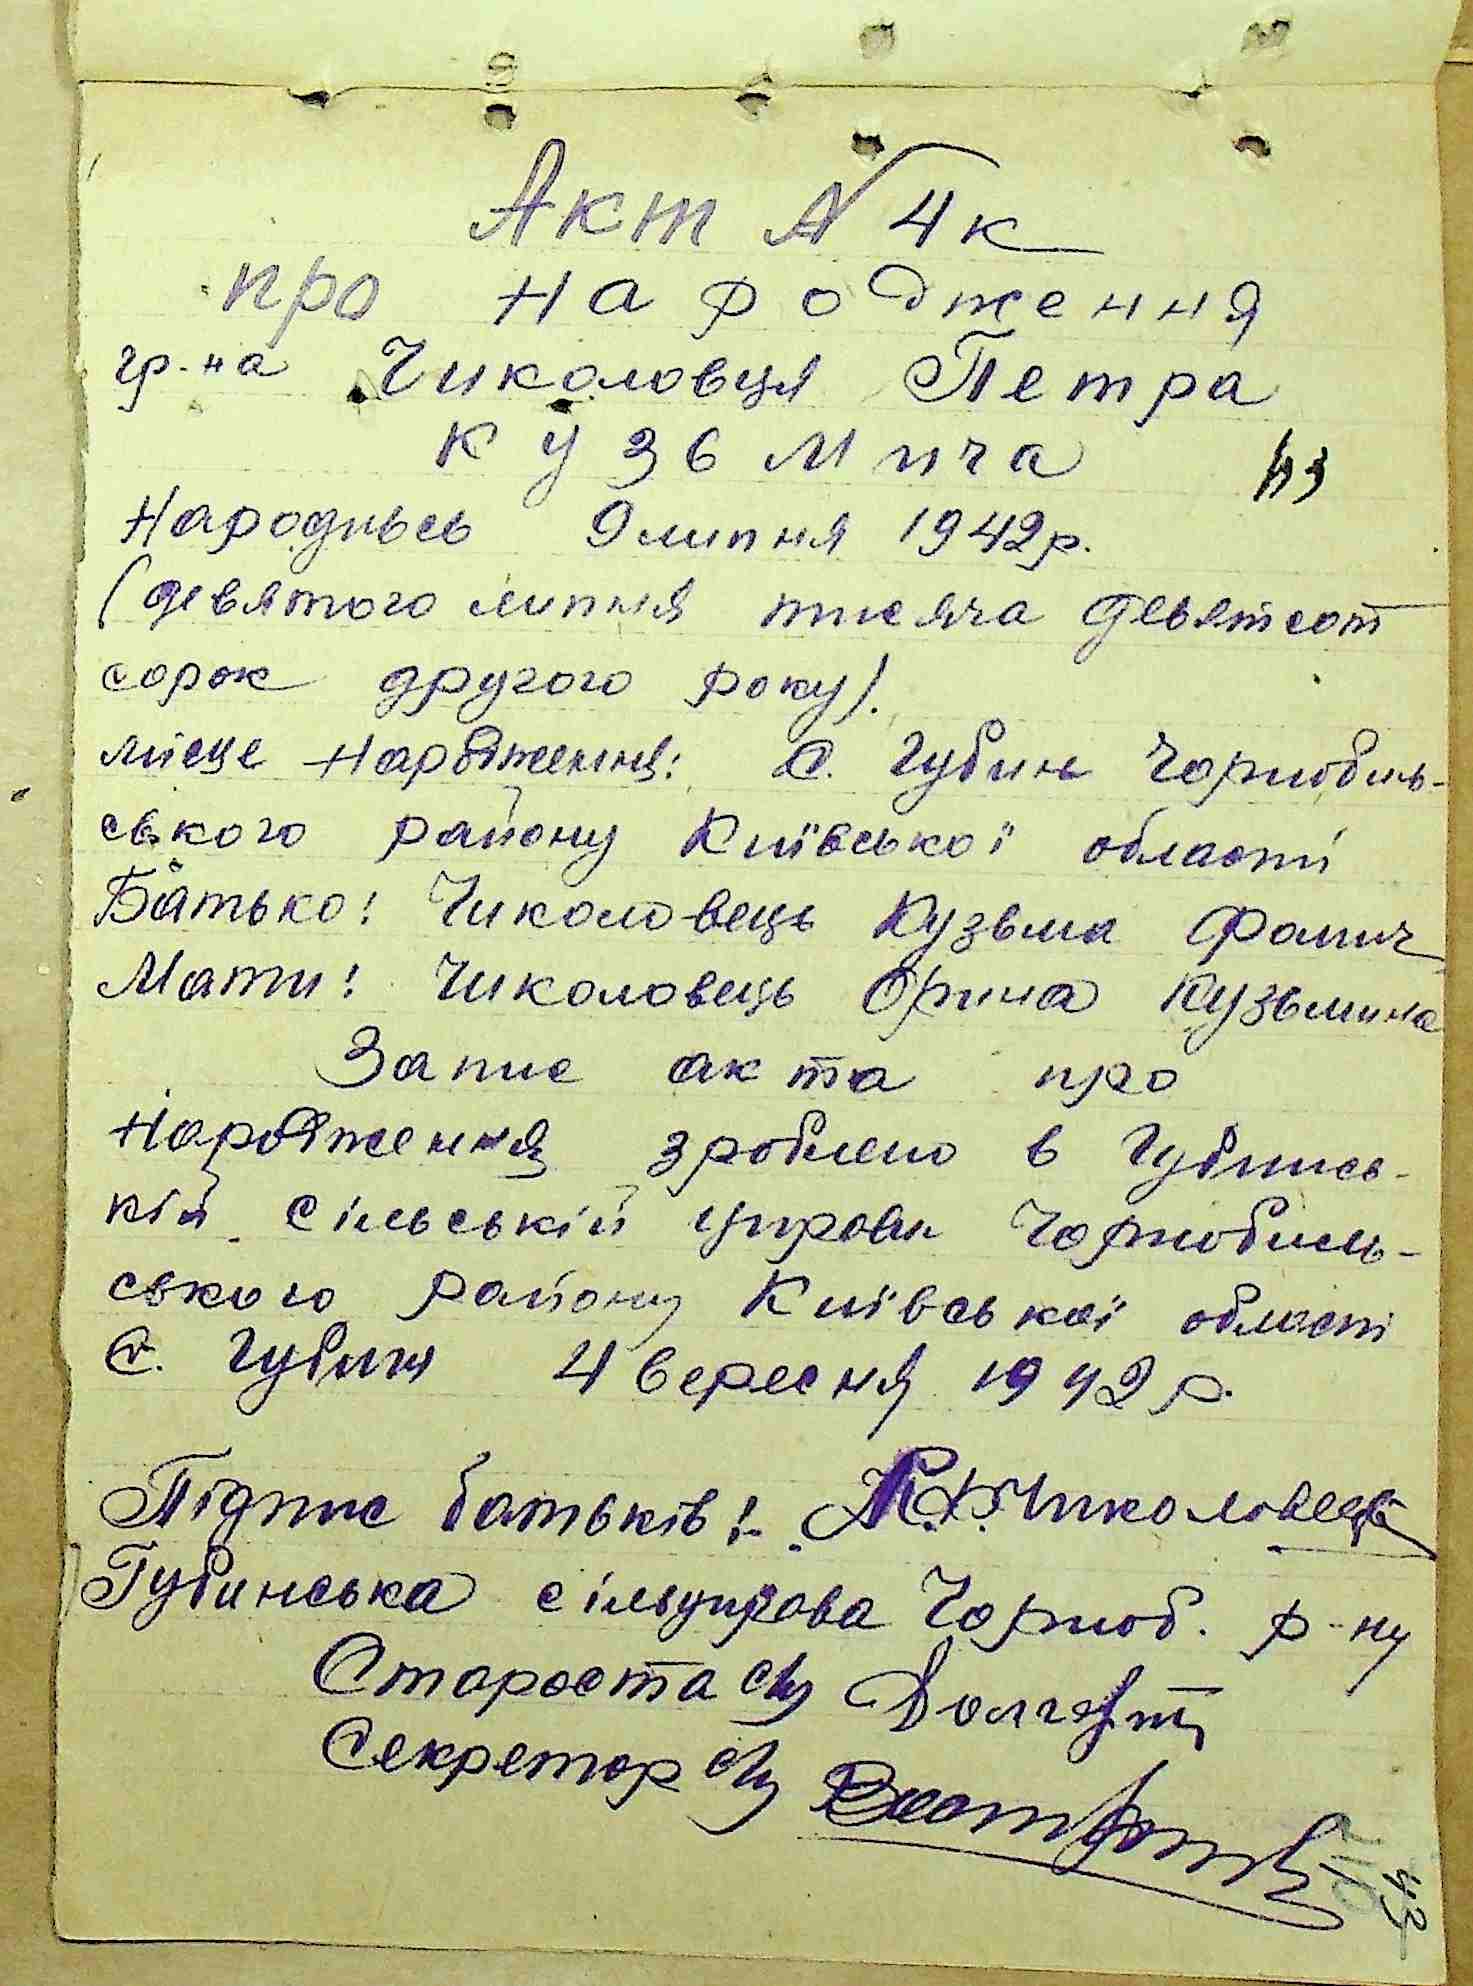 Акт № 4к
про народження
гр-на Чиколовця Петра
Кузьмича
Народивсь 9 липня 1942 р.
(девятого липня тисяча девятсот
сорок другого року).
місце народження: с. Губин Чорнобиль-
ського району Київської області
Батько: Чиколовець Кузьма Фомич
Мати: Чиколовець Орина Кузьминa
Запис акта про
народження зроблено в Губинсь-
кій сільській управі Чорнобиль-
ського району Київської області
с. Губин 4 вересня 1942 р.
Підпис батьків: К.Ф. Чиколовець
Губинська сільуправа Чорноб. р-ну
Староста с/у
Секретар с/у
43